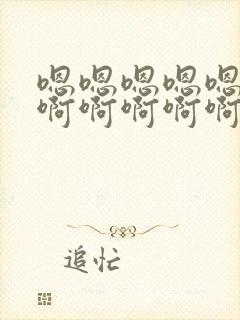 嗯嗯嗯嗯嗯
啊啊啊啊啊
追忙